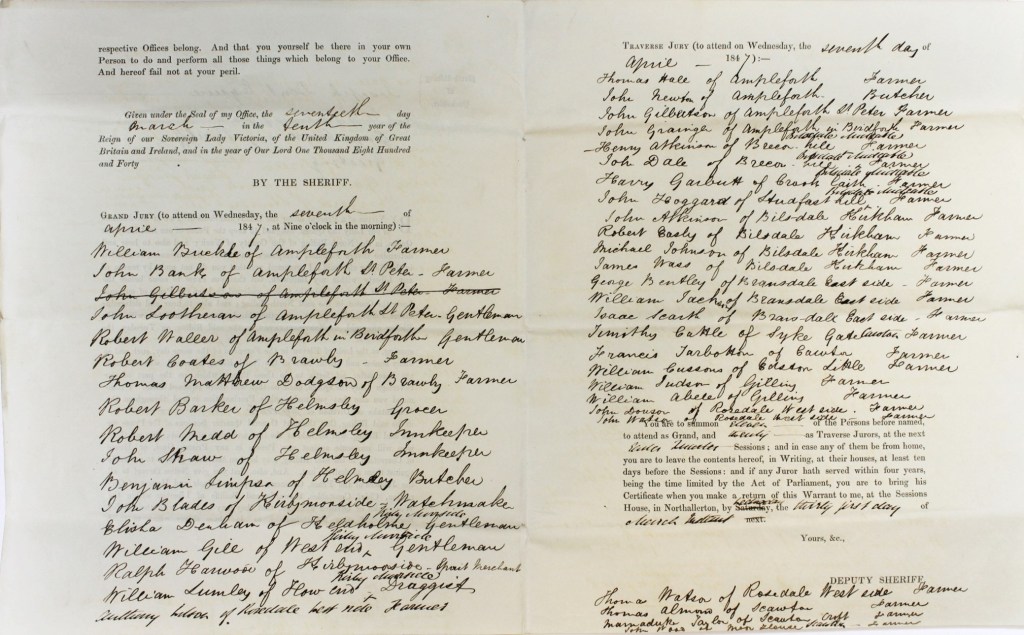 respective Offices belong. And that you yourself be there in your own
Person to do and perform all those things which belong to your Office.
And hereof fail not at your peril.
Given under the Seal of my Office, the seventeeth day
March in the tenth year of the
Reign of our Sovereign Lady Victoria, of the United Kingdom of Great
Britain and Ireland, and in the year of Our Lord One Thousand Eight Hundred
and Forty
BY THE SHERIFF.
GRAND JURY (to attend on Wednesday, the seventh of
April 1847, at Nine o'clock in the morning):—
William Buckle of Ampleforth Farmer
John Bank of Ampleforth St Peter - Farmer
John Gilbutson of Ampleforth St Peter - Farmer
John Sootheran of Ampleforth St Peter - Gentleman
Robert Waller of Ampleforth in Birdforth Gentleman
Robert Coates of Brawby - Farmer
Thomas Matthew Dodgson of Brawby Farmer
Robert Barker of Helmsley Grocer
Robert Medd of Helmsley Innkeeper
John Shaw of Helmsley Innkeeper
Benjamin Simpson of Helmsley Butcher
John Blades of Kirbymoorside - Watchmaker
Elisha Denham of Keldholme, Kirby Moorside Gentleman
William Gill of West end, Kirby Moorside Gentleman
Ralph Harwood of Kirbymoorside - Spirit Merchant
William Lumley of How end, Kirby Moorside Druggist
Anthony of Rosedale West side Farmer
TRAVERSE JURY (to attend on Wednesday, the seventh day of
April 1847):—
Thomas Hale of Ampleforth Farmer
John Newton of Ampleforth Butcher
John Gilbutson of Ampleforth St Peter Farmer
John Grainger of Ampleforth in Birdforth Farmer
Henry Atkinson of Brecon hill Farmer
John Dale of Brecon hill Farmer
Harry Garbutt of Crook Farmer
John Hoggard of Studfast hill, Farmer
John Atkinson of Bilsdale Kirkham Farmer
Robert Easby of Bilsdale Kirkham Farmer
Michael Johnson of Bilsdale Kirkham Farmer
James Wass of Bilsdale Kirkham Farmer
George Bentley of Bransdale East side - Farmer
William of Bransdale East side Farmer
Isaac Scarth of Bransdale East side - Farmer
Timothy Cattle of Syke Gate Farmer
Francis Tarbotton of Cawton Farmer
William Cussons of Edston Little Farmer
William Judson of Gilling Farmer
William of Gilling Farmer
John Dowson of Rosedale West side. Farmer
John of Rosedale West side Farmer
You are to summon of the Persons before named,
to attend as Grand, and twenty as Traverse Jurors, at the next
Sessions; and in case any of them be from home,
you are to leave the contents hereof, in Writing, at their houses, at least ten
days before the Sessions: and if any Juror hath served within four years,
being the time limited by the Act of Parliament, you are to bring his
Certificate when you make a return of this Warrant to me, at the Sessions
House, in Northallerton, by Saturday, the thirty first day of
March Instant next.
Yours, &c.,
DEPUTY SHERIFF.
Thomas Watson of Rosedale West side Farmer
Thomas Almond of Scawton Farmer
Marmaduke Taylor of Scawton Croft Farmer
John Wood of Moor House Scawton - Farmer